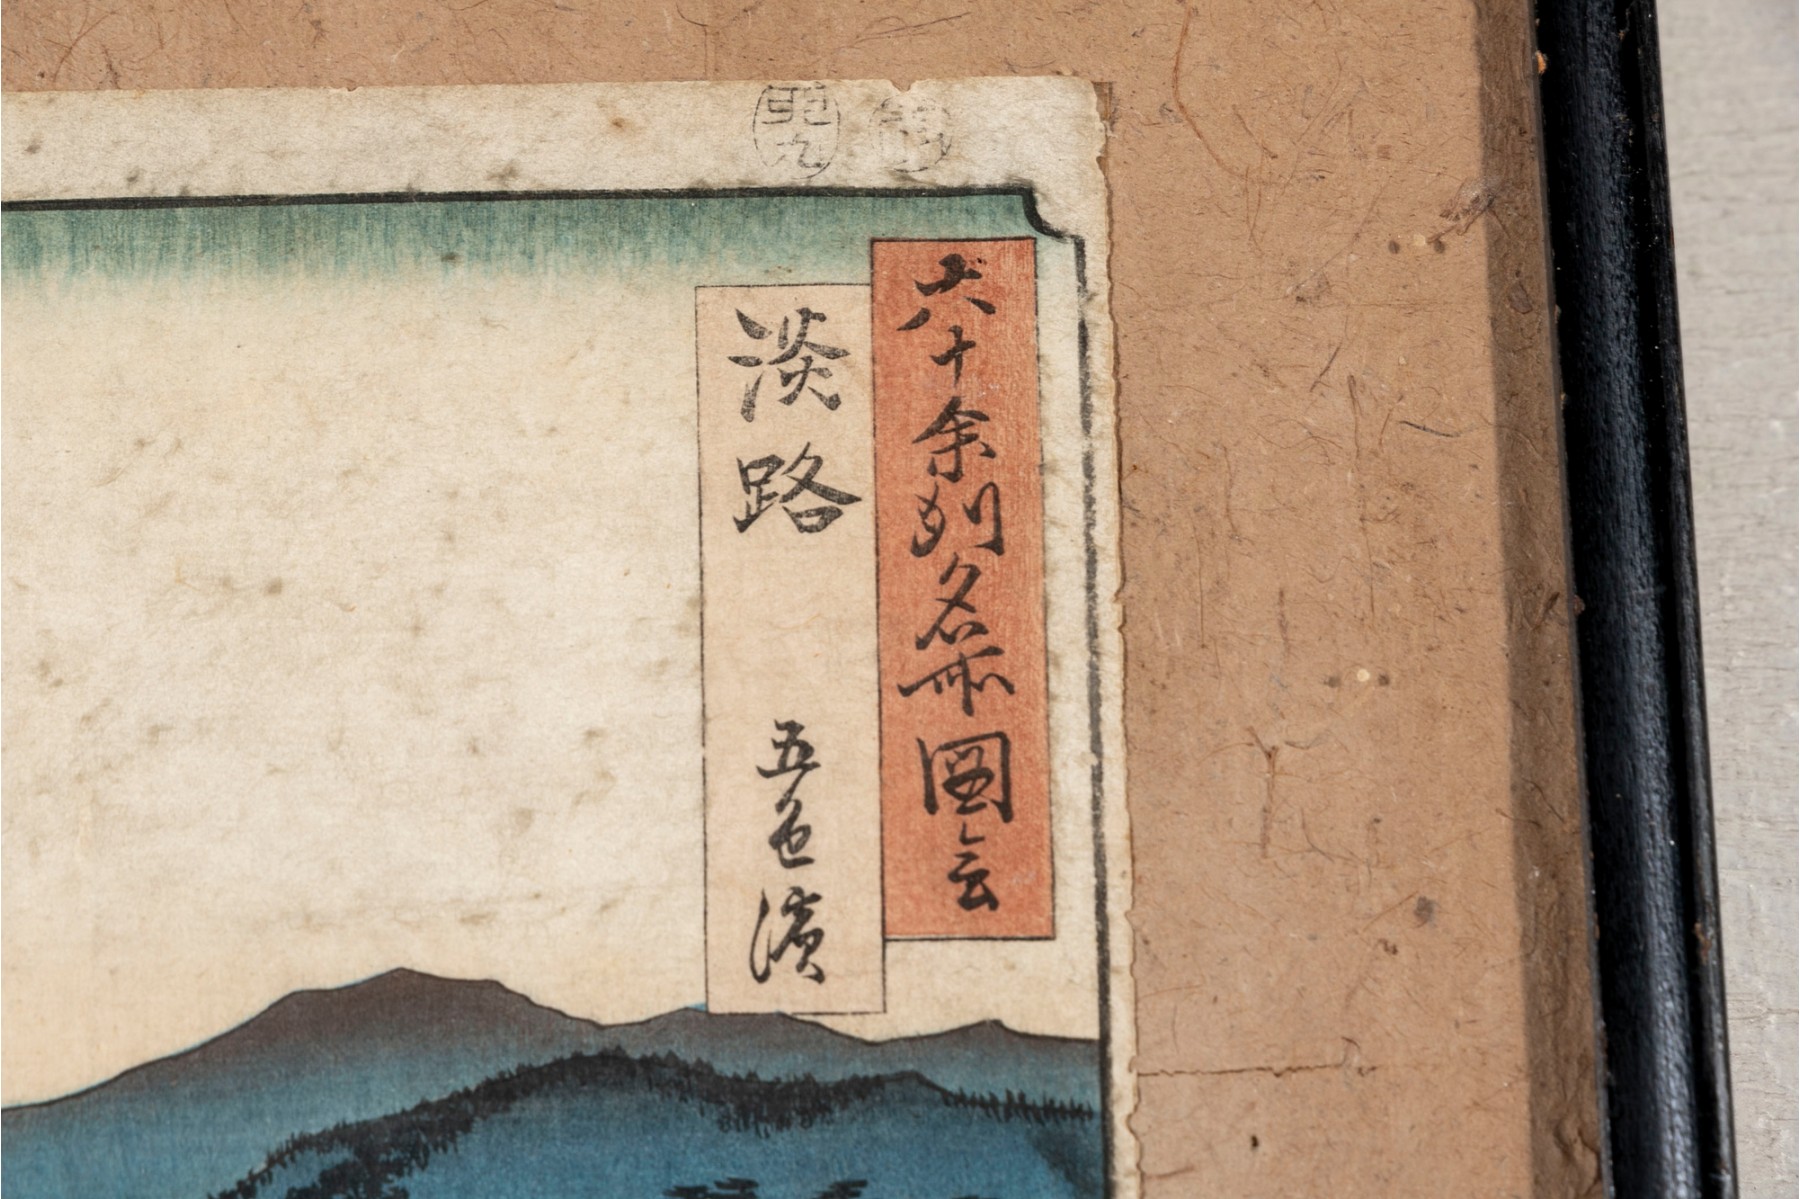 六十余州名所圖会
淡路 五色濱